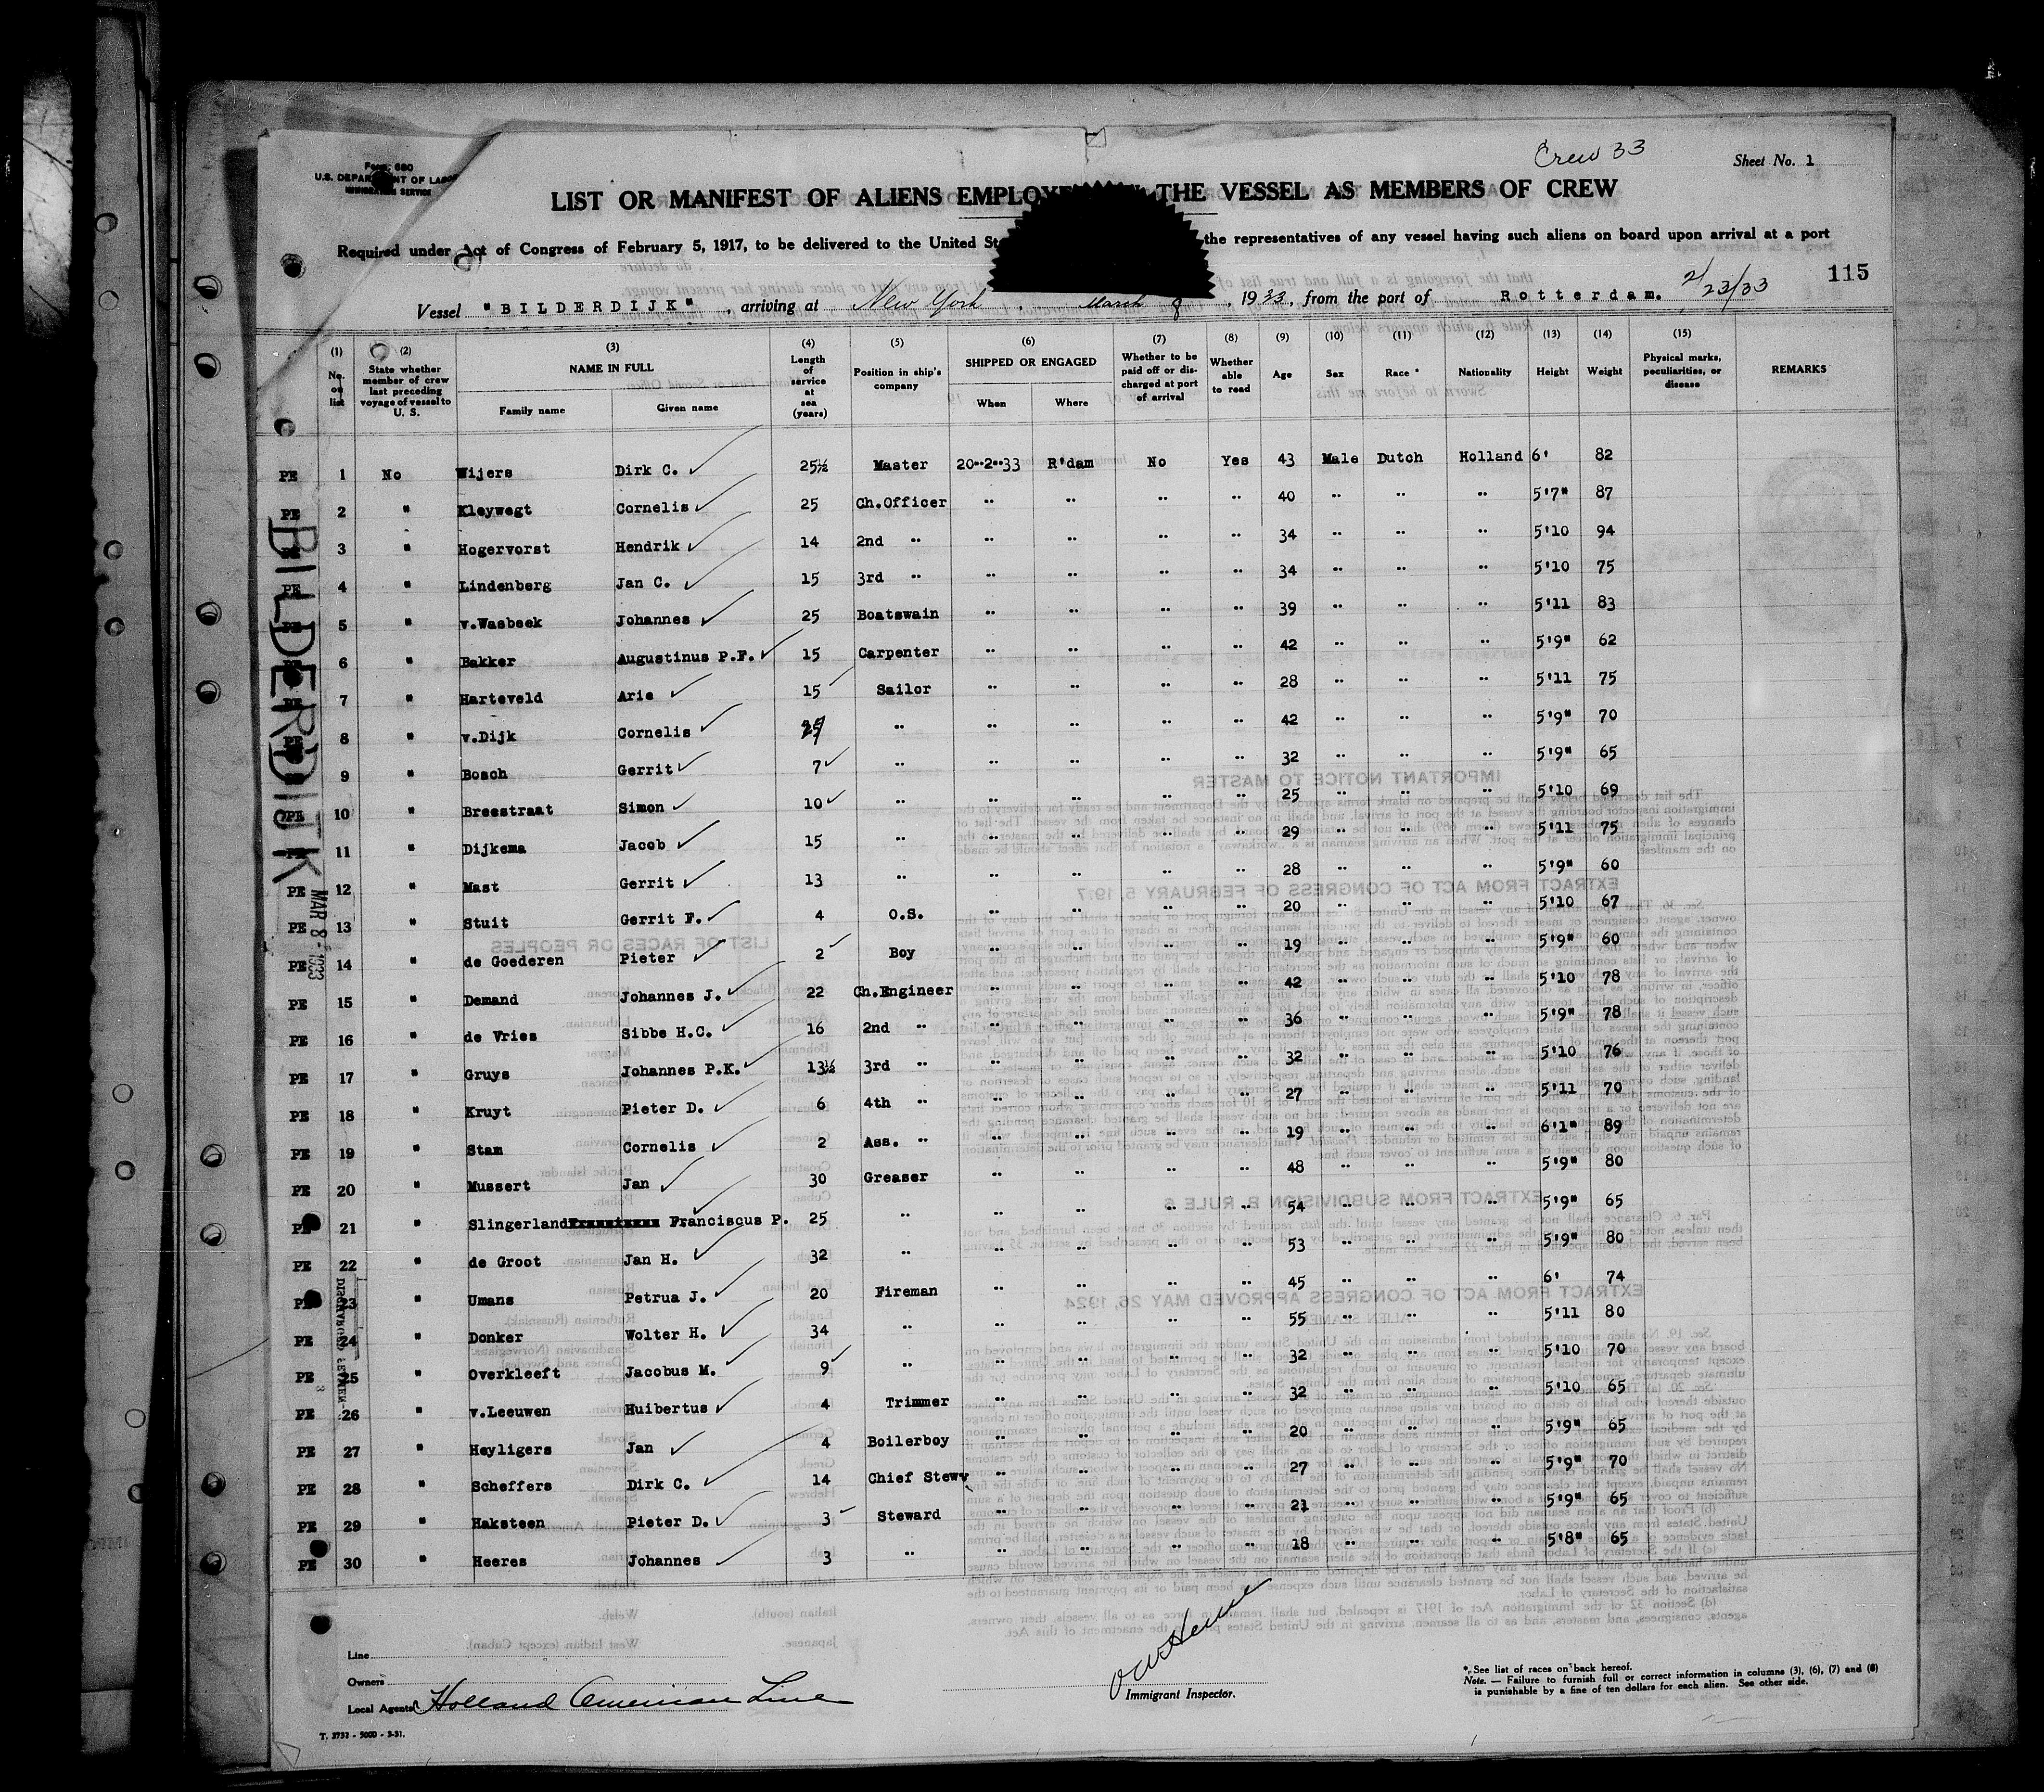 Crew 33
Sheet No. 1
Form 680
U.S. DEPARTMENT OF LABOR
IMMIGRATION SERVICE
LIST OR MANIFEST OF ALIENS EMPLOYE THE VESSEL AS MEMBERS OF CREW
Required under Act of Congress of February 5, 1917, to be delivered to the United St the representatives of any vessel having such aliens on board upon arrival at a port
115
Vessel "BILDERDIJK", arriving at New York, March 8, 1933, from the port of Rotterdam. 2/23/33
(1) No. on list (2) State whether member of crew last preceding voyage of vessel to U. S. (3) NAME IN FULL Family name Given name (4) Length of service at sea (years) (5) Position in ship's company (6) SHIPPED OR ENGAGED When Where (7) Whether to be paid off or discharged at port of arrival (8) Whether able to read (9) Age (10) Sex (11) Race * (12) Nationality (13) Height (14) Weight (15) Physical marks, peculiarities, or disease REMARKS
PE 1 No Wijers Dirk C. 25½ Master 20-2-33 R'dam No Yes 43 Male Dutch Holland 6' 82
PE 2 " Kleywegt Cornelis 25 Ch.Officer " " " " 40 " " " 5'7" 87
PE 3 " Hogervorst Hendrik 14 2nd " " " " " 34 " " " 5'10 94
PE 4 " Lindenberg Jan C. 15 3rd " " " " " 34 " " " 5'10 75
PE 5 " v.Wasbeek Johannes 25 Boatswain " " " " 39 " " " 5'11 83
PE 6 " Bakker Augustinus P.F. 15 Carpenter " " " " 42 " " " 5'9" 62
PE 7 " Harteveld Arie 15 Sailor " " " " 28 " " " 5'11 75
PE 8 " v.Dijk Cornelis " " " " " 42 " " " 5'9" 70
PE 9 " Bosch Gerrit 7 " " " " " 32 " " " 5'9" 65
PE 10 " Breestraat Simon 10 " " " " " 25 " " " 5'10 69
PE 11 " Dijkema Jacob 15 " " " " " 29 " " " 5'11 75
PE 12 " Mast Gerrit 13 " " " " " 28 " " " 5'9" 60
PE 13 " Stuit Gerrit F. 4 O.S. " " " " 20 " " " 5'10 67
PE 14 " de Goederen Pieter 2 Boy " " " " 19 " " " 5'9" 60
PE 15 " Demand Johannes J. 22 Ch.Engineer " " " " 42 " " " 5'10 78
PE 16 " de Vries Sibbe H.C. 16 2nd " " " " " 36 " " " 5'9" 78
PE 17 " Gruys Johannes P.K. 13½ 3rd " " " " " 32 " " " 5'10 76
PE 18 " Kruyt Pieter D. 6 4th " " " " " 27 " " " 5'11 70
PE 19 " Stam Cornelis 2 Ass. " " " " " 19 " " " 6'1" 89
PE 20 " Mussert Jan 30 Greaser " " " " 48 " " " 5'9" 80
PE 21 " Slingerland Franciscus P. 25 " " " " " 54 " " " 5'9" 65
PE 22 " de Groot Jan H. 32 " " " " " 53 " " " 5'9" 80
PE 23 " Umans Petrua J. 20 Fireman " " " " 45 " " " 6' 74
PE 24 " Donker Wolter H. 34 " " " " " 55 " " " 5'11 80
PE 25 " Overkleeft Jacobus M. 9 " " " " " 32 " " " 5'10 70
PE 26 " v.Leeuwen Huibertus 4 Trimmer " " " " 32 " " " 5'10 65
PE 27 " Heyligers Jan 4 Boilerboy " " " " 20 " " " 5'9" 65
PE 28 " Scheffers Dirk C. 14 Chief Stew " " " " 27 " " " 5'9" 70
PE 29 " Haksteen Pieter D. 3 Steward " " " " 21 " " " 5'9" 65
PE 30 " Heeres Johannes 3 " " " " " 18 " " " 5'8" 65
BILDERDIJK
MAR 8-1933
Line
Owners
Local Agents Holland American Line
Immigrant Inspector.
* See list of races on back hereof.
Note. — Failure to furnish full or correct information in columns (3), (6), (7) and (8)
is punishable by a fine of ten dollars for each alien. See other side.
T. 3733 - 5000 - 3-31.